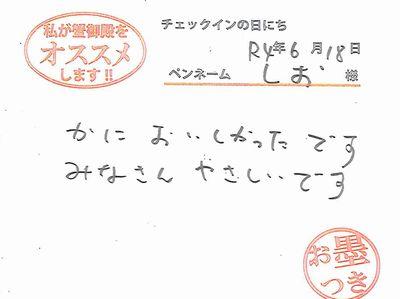 私が蟹御殿を
オススメ
します!!
チェックインの日にち
R4年6月18日
ペンネーム しお 様
かに おいしかった です
みなさん やさしいです
お墨
つき